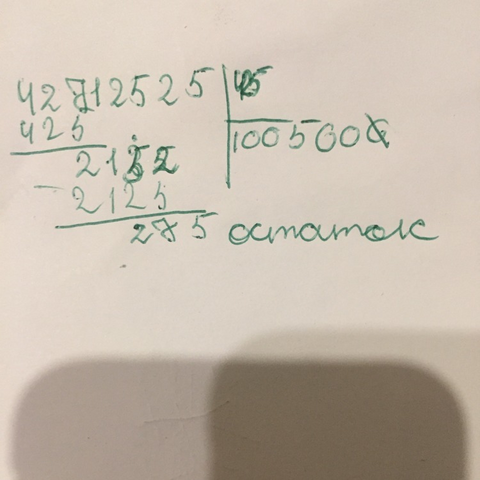 42712525 425
425 1005000
2152
2125
275 остаток